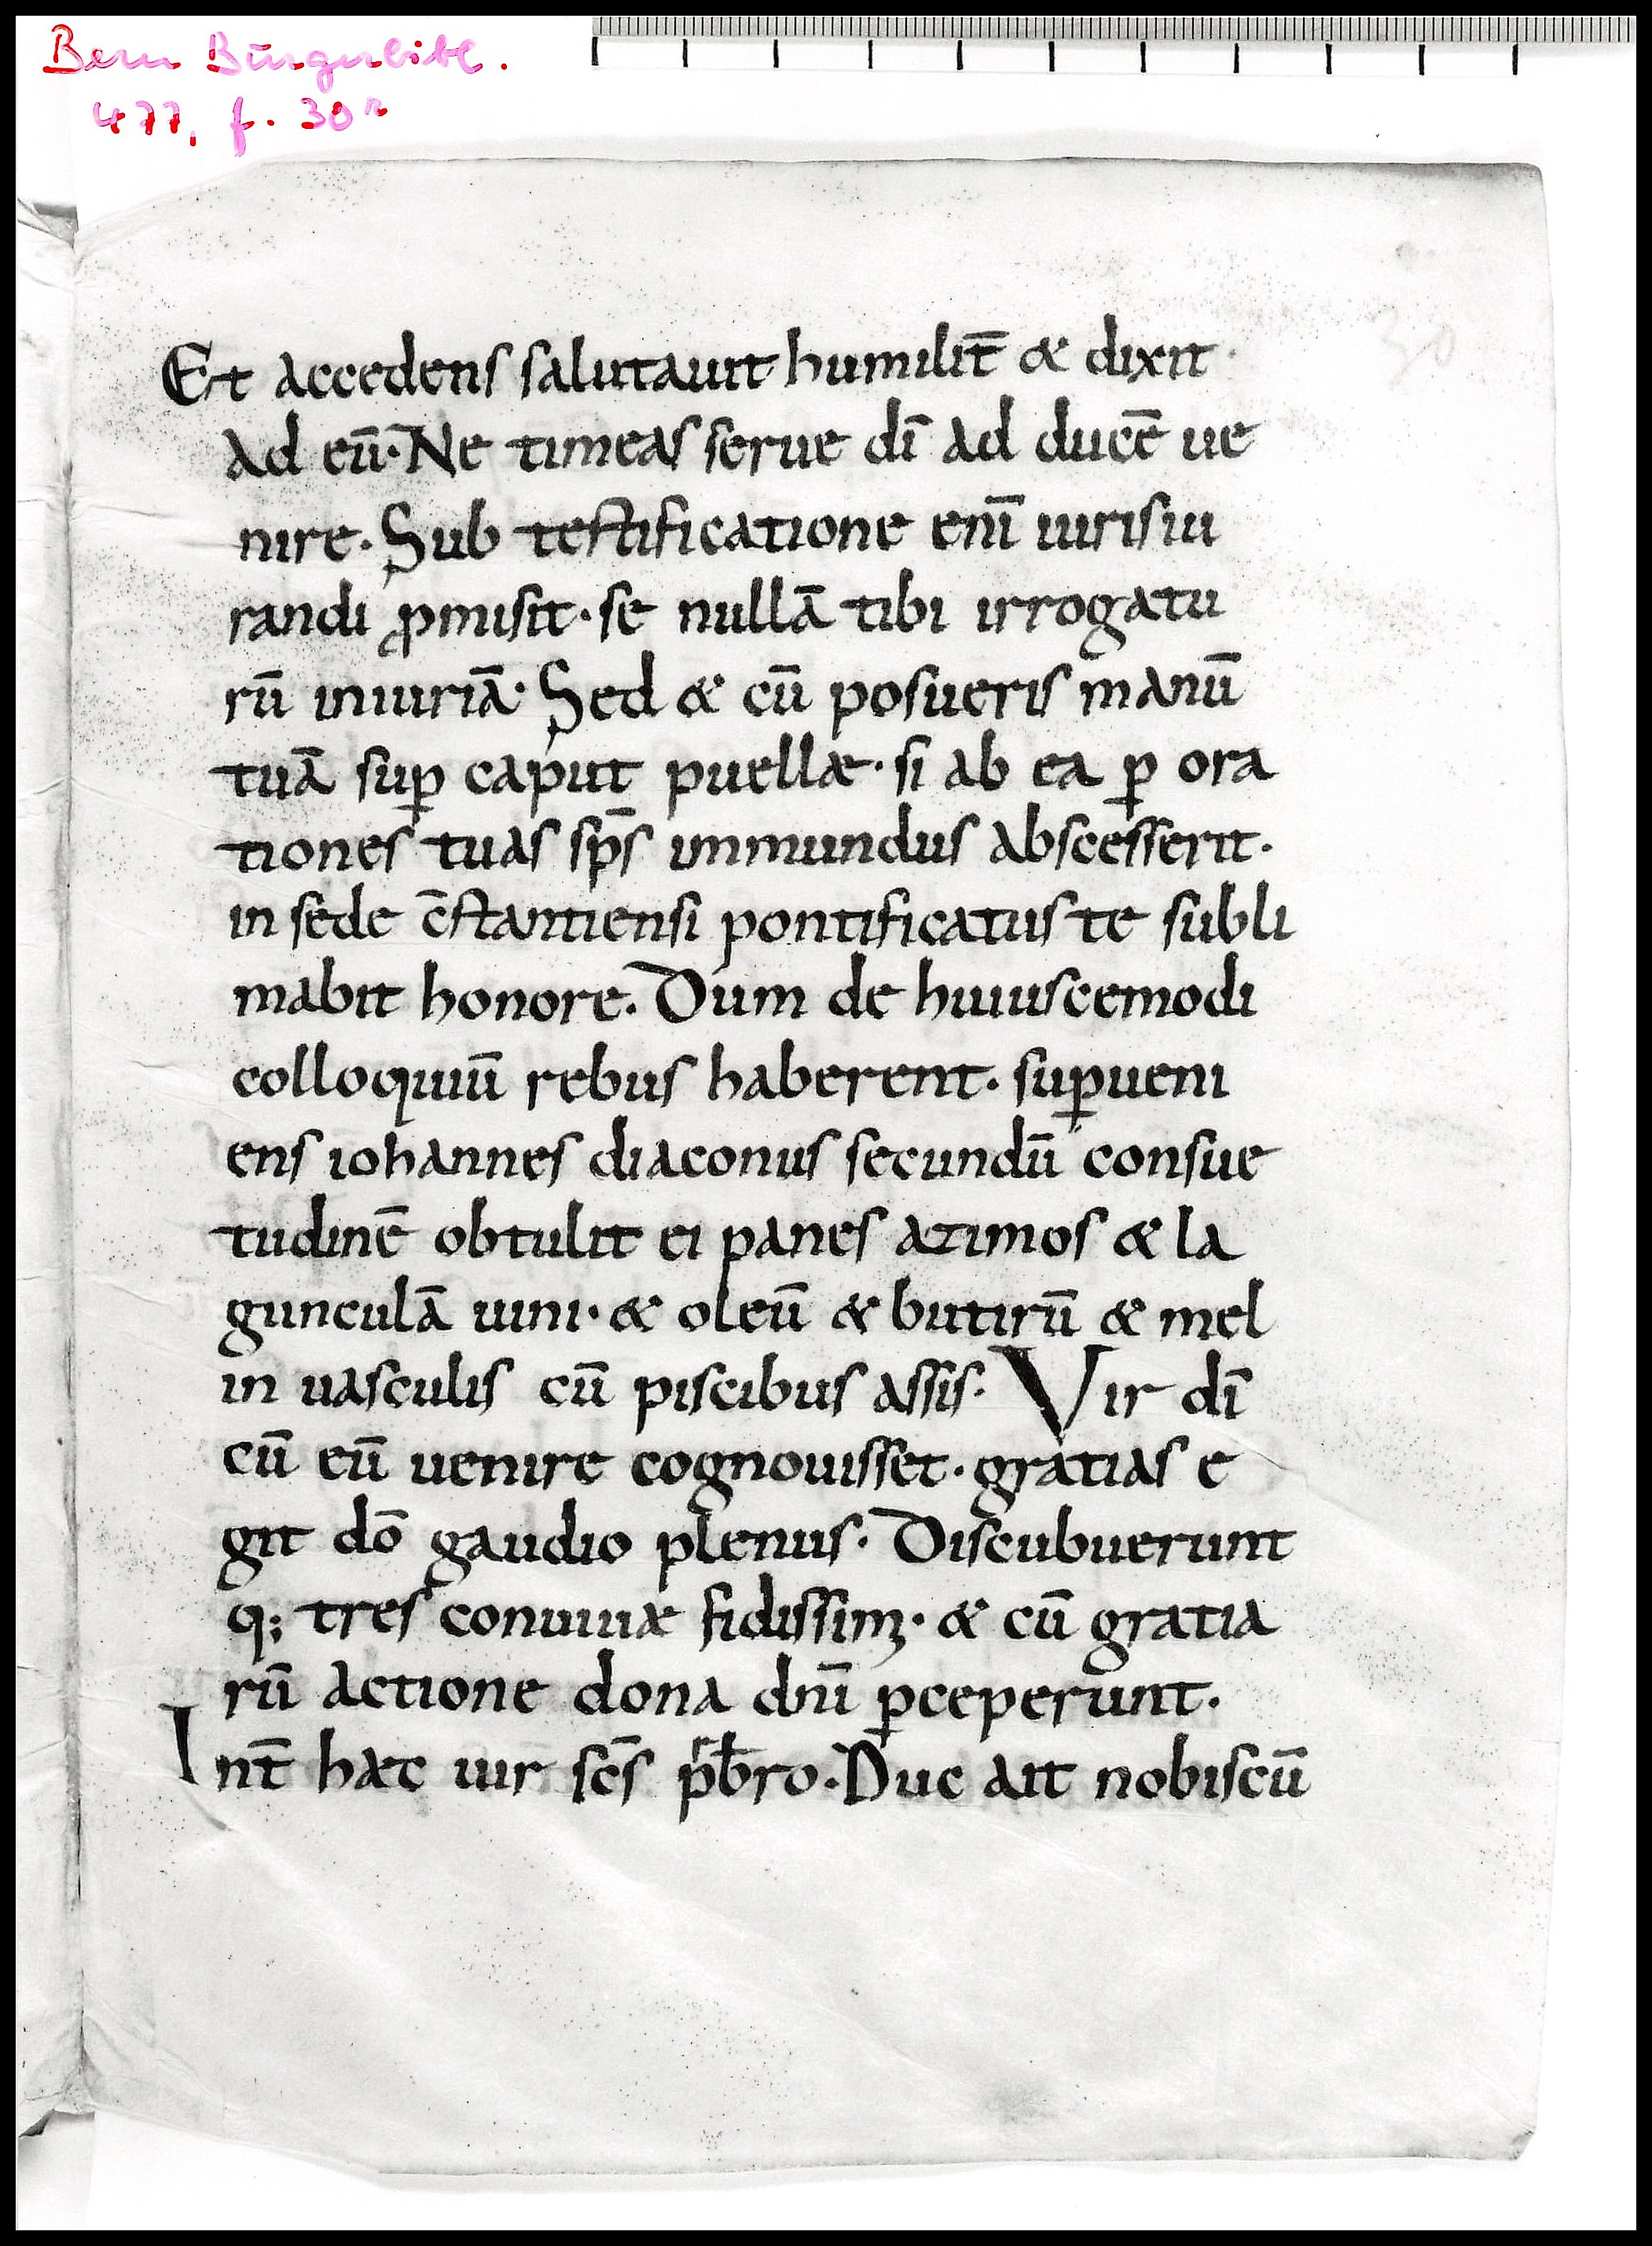 Bern Burgerbibl.
477, f. 30r
30
Et accedens salutauit humilit̄ & dixit·
ad eū· Ne timeas serue dī ad ducē ue
nire. Sub testificatione enī iurisiu
randi ꝓmisit· se nullā tibi irrogatu
rū iniuriā· Sed & cū posueris manū
tuā suꝑ caput puellæ· si ab ea ꝑ ora
tiones tuas sp̄s inmundus abscesserit.
in sede c̄stantiensi pontificatus te subli
mabit honore. Dum de huiuscemodi
colloquiū rebus haberent. suꝑueni
ens iohannes diaconus secundū consue
tudinē obtulit ei panes azimos & la
gunculā uini· & oleū & butirū & mel
in uasculis cū piscibus assis. Vir dī
cū eū uenire cognouisset. gratias e
git dō gaudio plenus. Discubuerunt
q; tres conuiuæ fidissimę· & cū gratia
rū actione dona dn̄i ꝑceperunt.
Int̄ hæc uir sc̄s pr̄b̄ro. Duc ait nobiscū